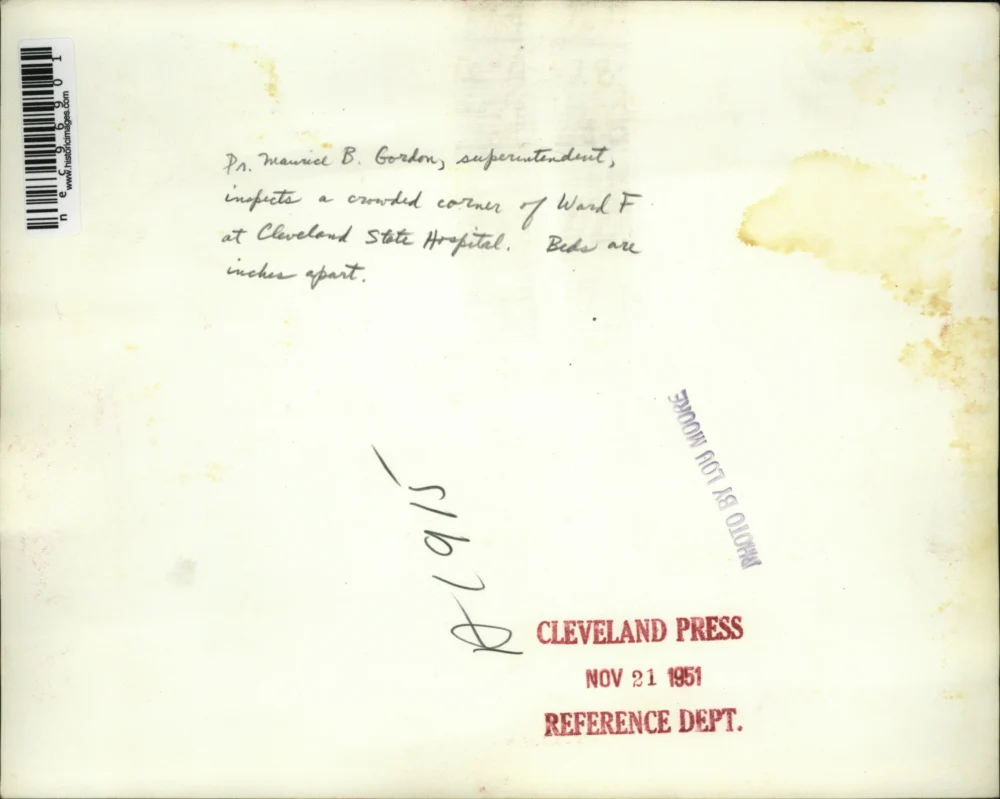 Dr. Maurice B. Gordon, superintendent,
inspects a crowded corner of Ward F
at Cleveland State Hospital. Beds are
inches apart.
PHOTO BY LOU MOORE
CLEVELAND PRESS
NOV 21 1951
REFERENCE DEPT.
www.historicimages.com